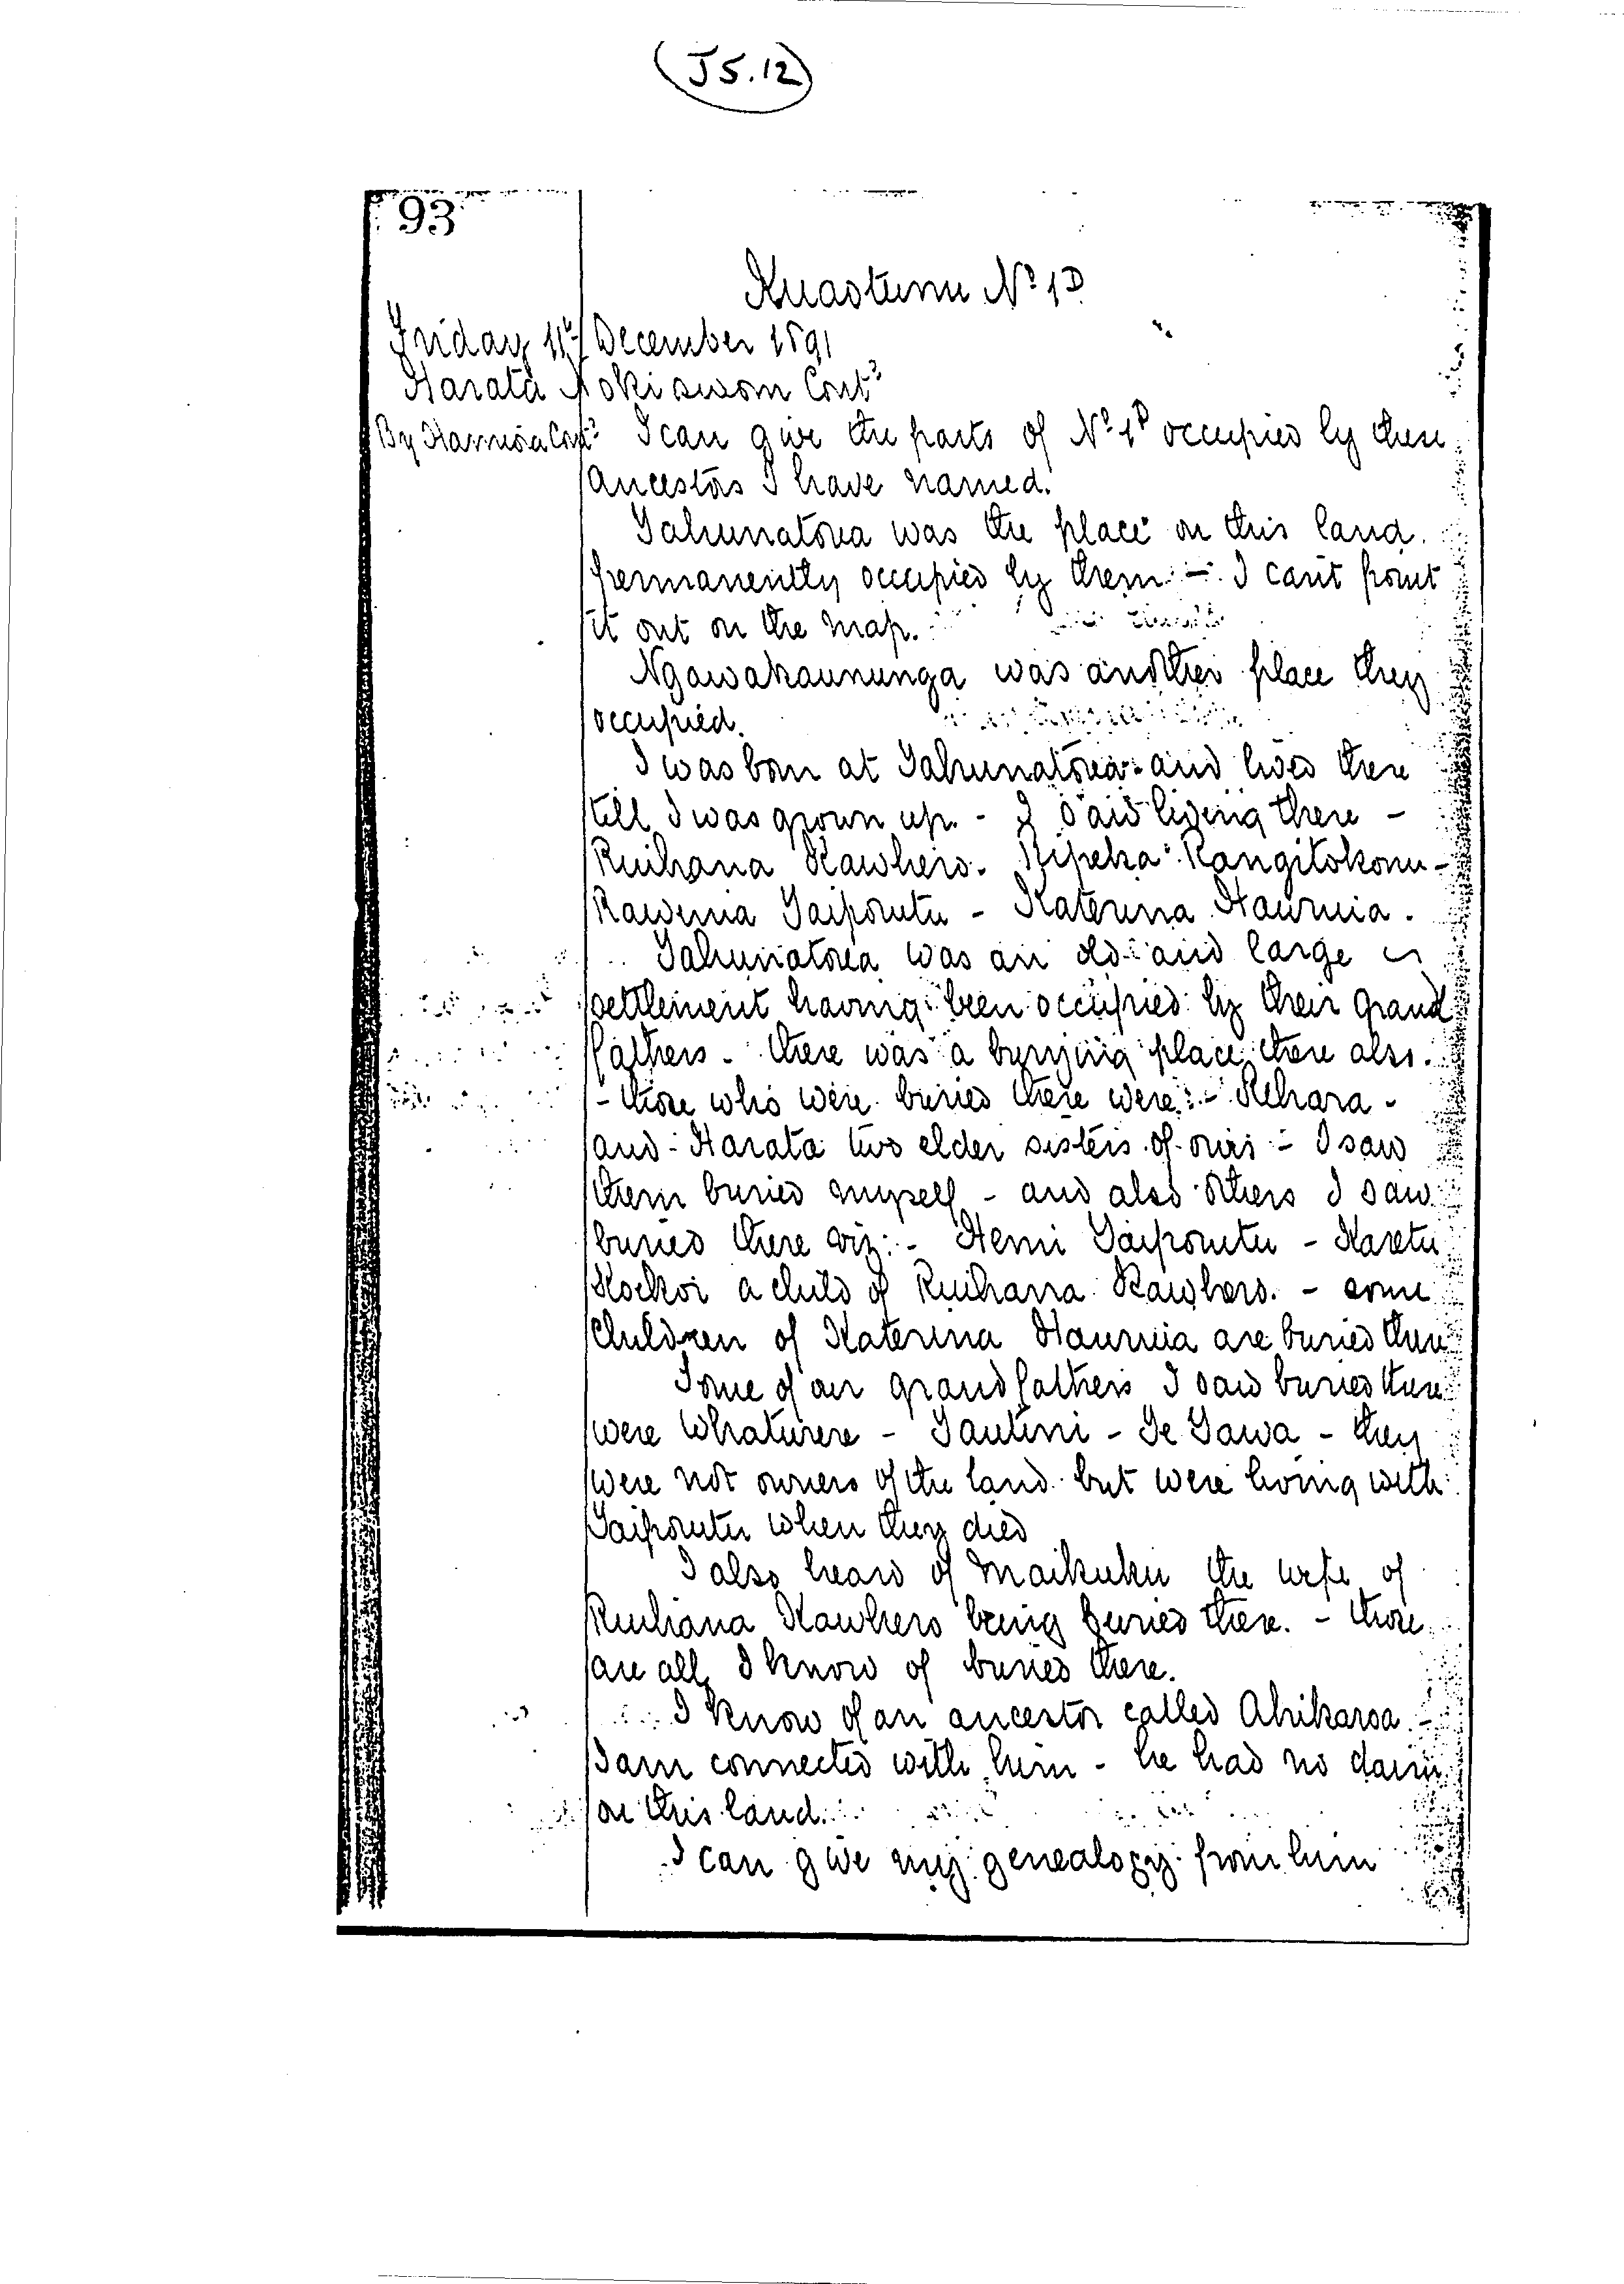 (J5.12)
93
Kuaotunu No 1D
Friday 11th December 1891
Harata Nokisworn Contd
By Harrison Contd I can give the parts of No 1D occupied by these
ancestors I have named.
Tahunatorea was the place on this land
permanently occupied by them - I can't point
it out on the map.
Ngawakaununga was another place they
occupied.
I was born at Tahunatorea and lived there
till I was grown up - I saw living there -
Ruihana Kawhero. Ripeka Rangitokonu -
Rawinia Taipoutu - Katerina Hauruia.
Tahunatorea was an old and large
settlement having been occupied by their grand
fathers - there was a burying place there also.
- those who were buried there were: - Rehara -
and - Harata two elder sisters of ours - I saw
them buried myself - and also others I saw
buried there viz: - Hemi Taipoutu - Karetu
a child of Ruihana Kawhero. - some
children of Katerina Hauruia are buried there
Some of our grandfathers I saw buried there
were Whaturere - Tautini - Te Tawa - they
were not owners of the land but were living with
Taipoutu when they died
I also heard of Maikuku the wife of
Ruihana Kawhero being buried there. - those
are all I know of buried there.
I know of an ancestor called Ahikaroa -
I am connected with him - he had no claim
on this land.
I can give my genealogy from him